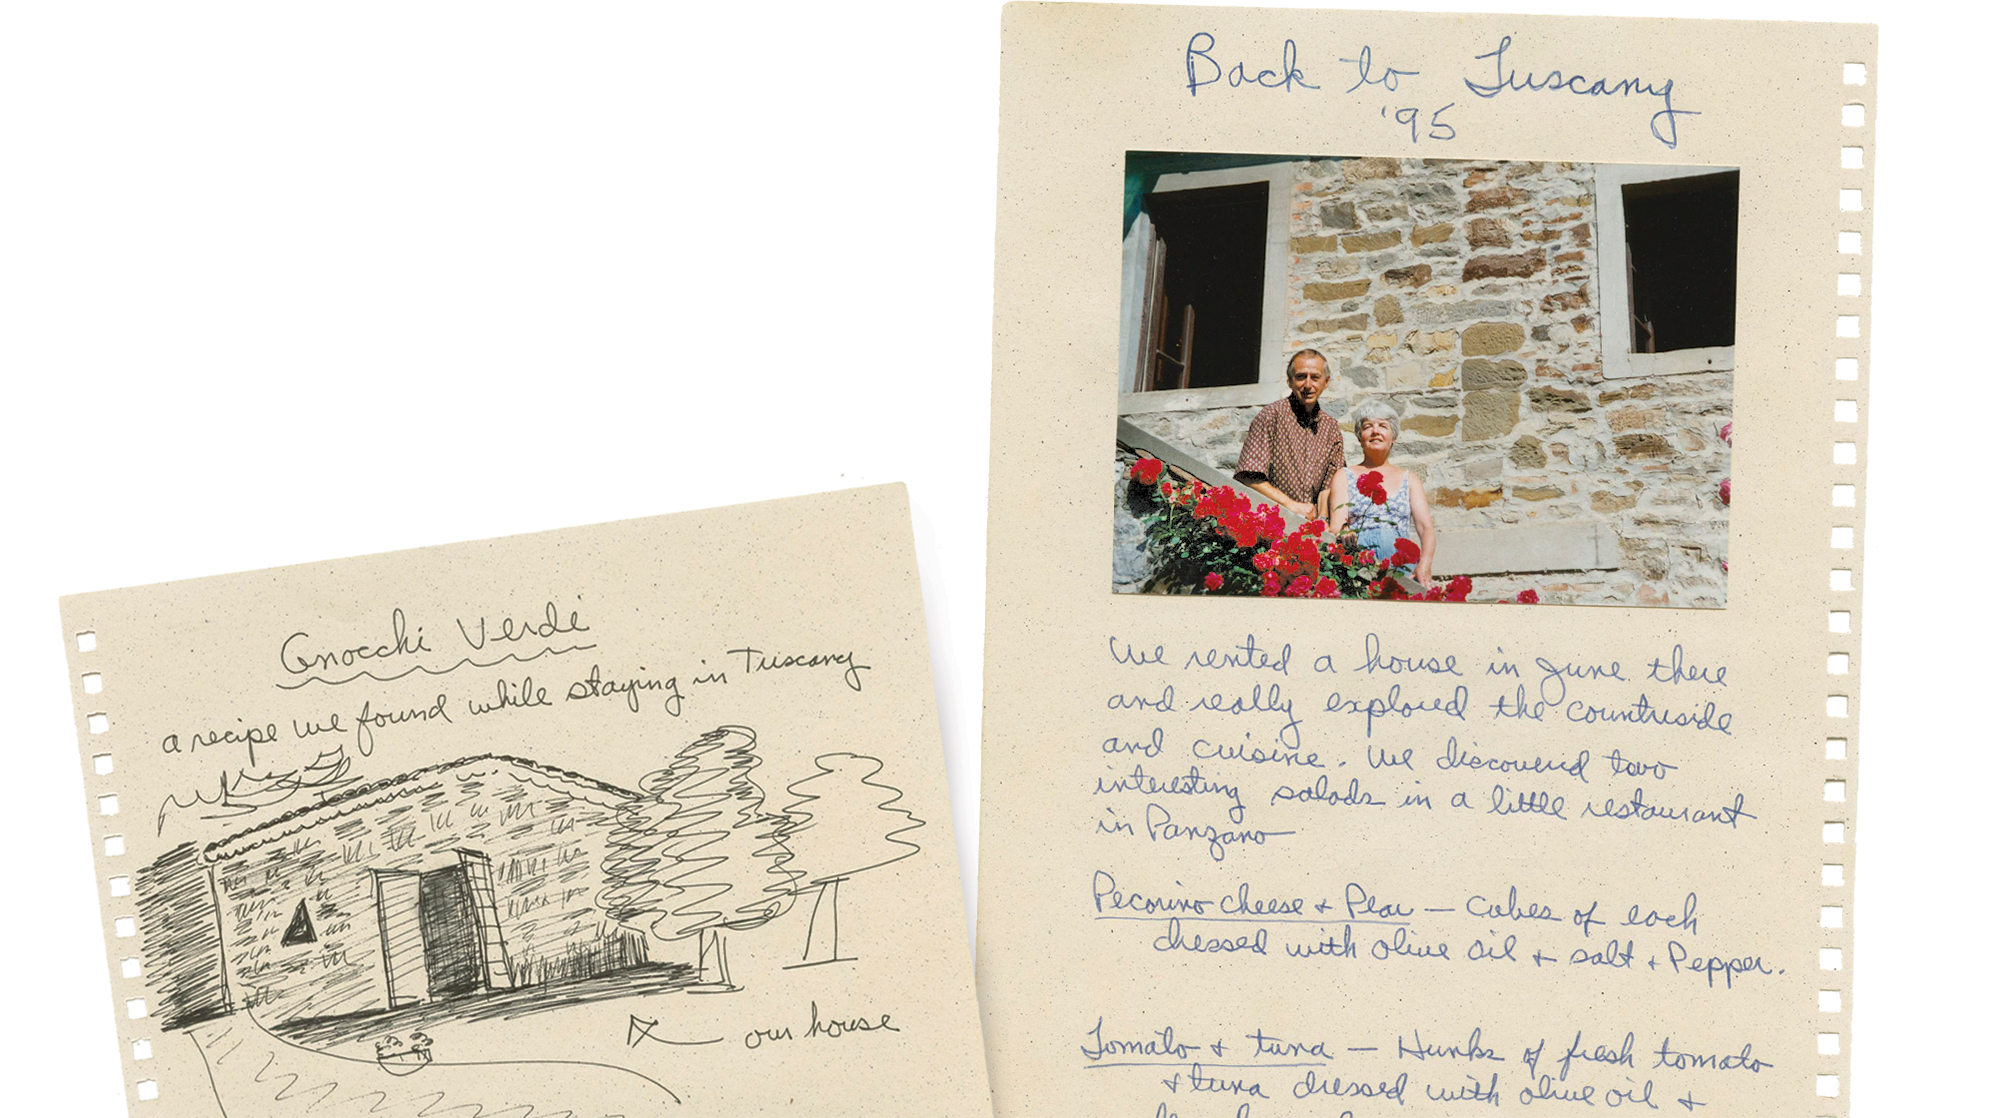 Gnocchi Verdi
a recipe we found while staying in Tuscany
our house
Back to Tuscany
'95
We rented a house in June there
and really explored the countryside
and cuisine. We discovered two
interesting salads in a little restaurant
in Panzano
Pecorino cheese + Pear — Cubes of each
dressed with olive oil + salt + Pepper.
Tomato + tuna — Hunks of fresh tomato
+ tuna dressed with olive oil +